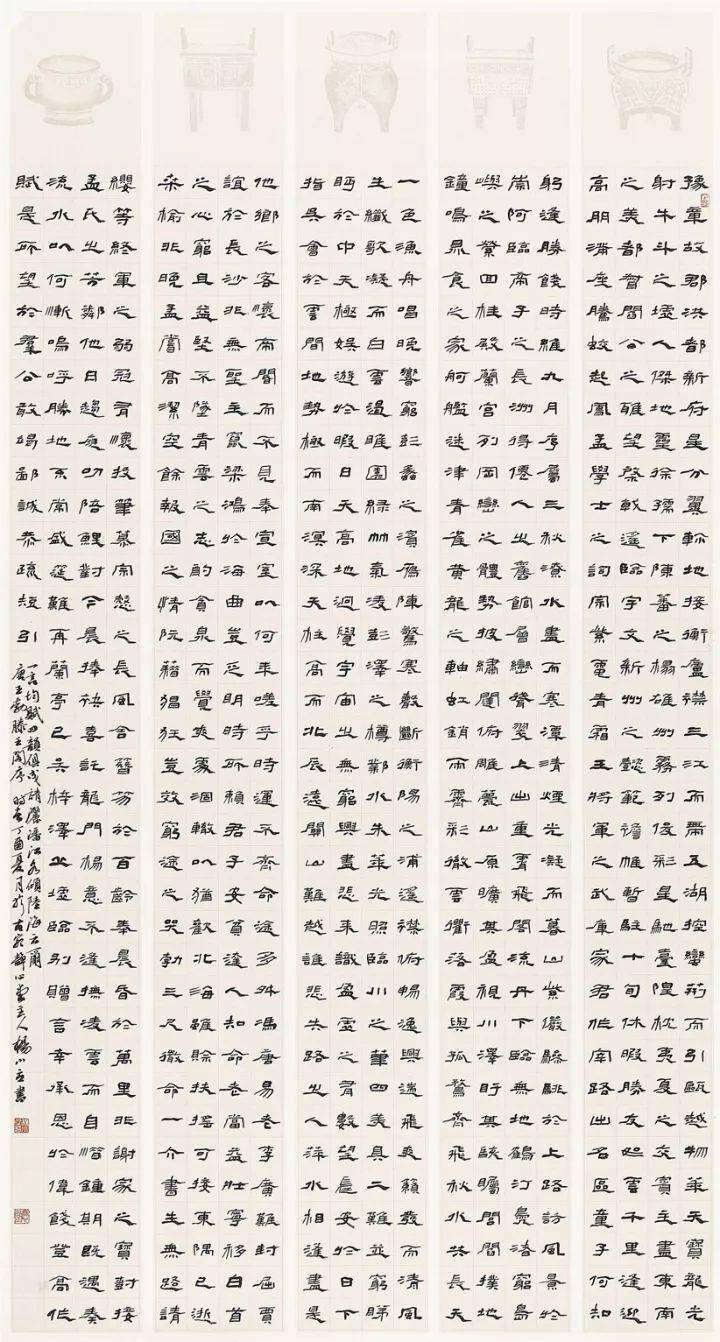 豫章故郡洪都新府星分翼軫地接衡廬襟三江而帶五湖控蠻荊而引甌越物華天寶龍光
射牛斗之墟人傑地靈徐孺下陳蕃之榻雄州霧列俊彩星馳臺隍枕夷夏之交賓主盡東南
之美都督閻公之雅望棨戟遙臨宇文新州之懿範襜帷暫駐十旬休暇勝友如雲千里逢迎
高朋滿座騰蛟起鳳孟學士之詞宗紫電青霜王將軍之武庫家君作宰路出名區童子何知
躬逢勝餞時維九月序屬三秋潦水盡而寒潭清煙光凝而暮山紫儼驂騑於上路訪風景於
崇阿臨帝子之長洲得僊人之舊館層巒聳翠上出重霄飛閣流丹下臨無地鶴汀鳧渚窮島
嶼之縈回桂殿蘭宮列岡巒之體勢披繡闥俯雕甍山原曠其盈視川澤盱其駭矚閭閻撲地
鐘鳴鼎食之家舸艦迷津青雀黃龍之軸虹銷雨霽彩徹雲衢落霞與孤鶩齊飛秋水共長天
一色漁舟唱晚響窮彭蠡之濱雁陣驚寒聲斷衡陽之浦遙襟俯暢逸興遄飛爽籟發而清風
生纖歌凝而白雲遏睢園綠竹氣凌彭澤之樽鄴水朱華光照臨川之筆四美具二難並窮睇
眄於中天極娛遊於暇日天高地迥覺宇宙之無窮興盡悲來識盈虛之有數望長安於日下
指吳會於雲間地勢極而南溟深天柱高而北辰遠關山難越誰悲失路之人萍水相逢盡是
他鄉之客懷帝閽而不見奉宣室以何年嗟乎時運不齊命途多舛馮唐易老李廣難封屈賈
誼於長沙非無聖主竄梁鴻於海曲豈乏明時所賴君子安貧達人知命老當益壯寧移白首
之心窮且益堅不墜青雲之志酌貪泉而覺爽處涸轍以猶歡北海雖賒扶搖可接東隅已逝
桑榆非晚孟嘗高潔空餘報國之情阮籍猖狂豈效窮途之哭勃三尺微命一介書生無路請
纓等終軍之弱冠有懷投筆慕宗愨之長風舍簪笏於百齡奉晨昏於萬里非謝家之寶樹接
孟氏之芳鄰他日趨庭叨陪鯉對今晨捧袂喜託龍門楊意不逢撫凌雲而自惜鍾期既遇奏
流水以何慚嗚呼勝地不常盛筵難再蘭亭已矣梓澤丘墟臨別贈言幸承恩於偉餞登高作
賦是所望於羣公敢竭鄙誠恭疏短引
一言均賦四韻俱成請灑潘江各傾陸海云爾
唐王勃滕王閣序時在丁酉夏月於古宛靜心堂主人楊小立書